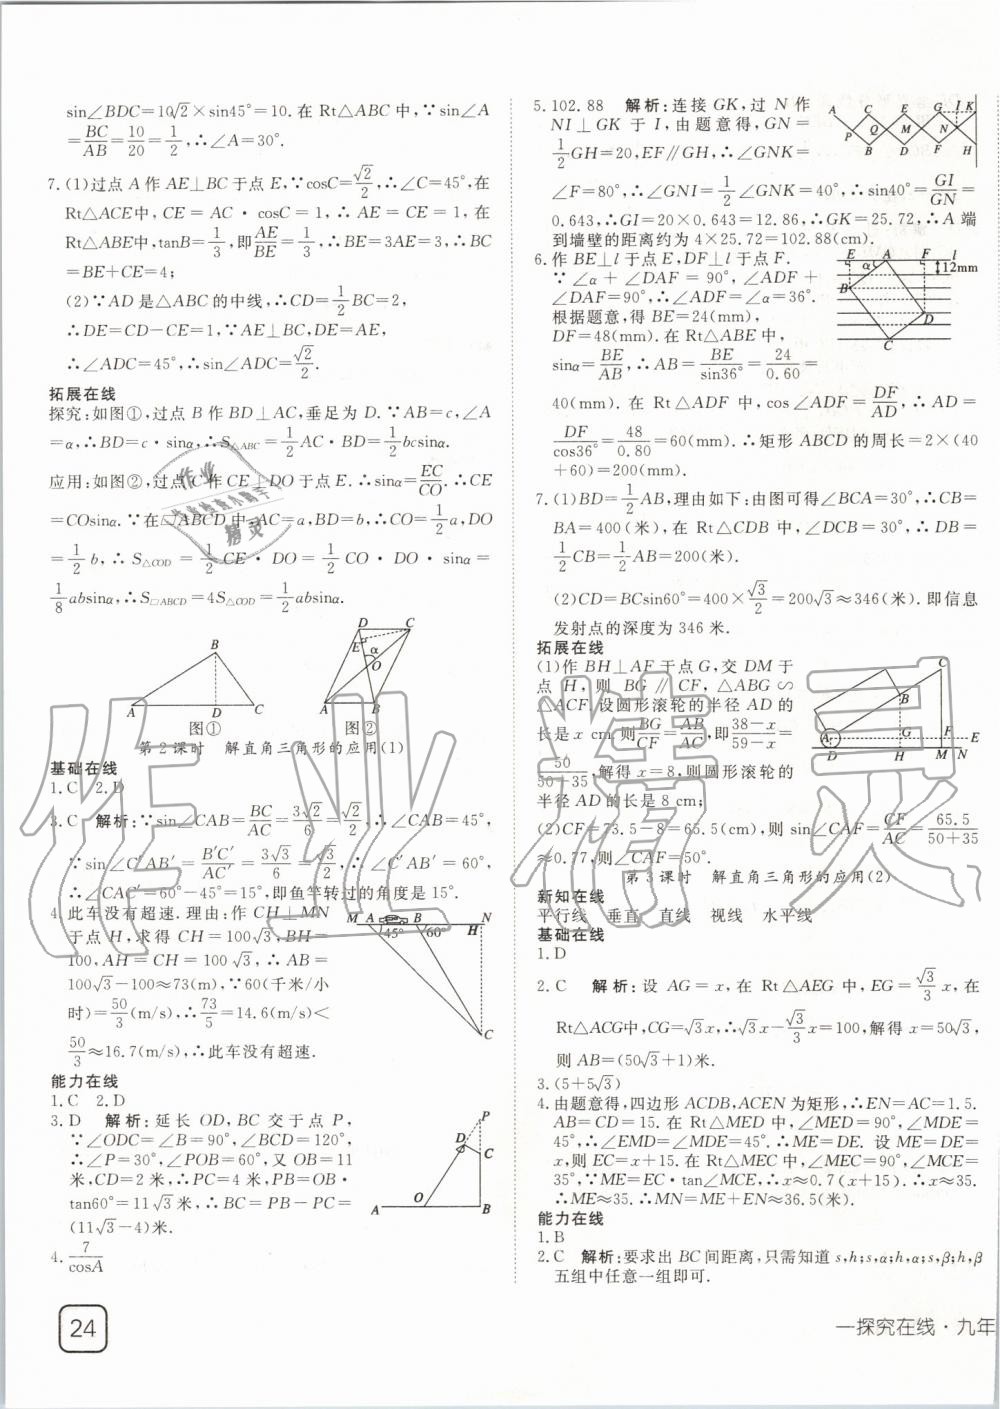 sin∠BDC=10√2×sin45°=10.在 Rt△ABC 中,∵sin∠A
=BC/AB=10/20=1/2,∴∠A=30°.
7.(1)过点 A 作 AE⊥BC 于点 E,∵cosC=√2/2,∴∠C=45°,在
Rt△ACE中,CE=AC·cosC=1,∴AE=CE=1,在
Rt△ABE中,tanB=1/3,即AE/BE=1/3,∴BE=3AE=3,∴BC
=BE+CE=4;
(2)∵AD 是△ABC 的中线,∴CD=1/2BC=2,
∴DE=CD-CE=1,∵AE⊥BC,DE=AE,
∴∠ADC=45°,∴sin∠ADC=√2/2.
拓展在线
探究:如图①,过点 B 作 BD⊥AC,垂足为 D.∵AB=c,∠A
=α,∴BD=c·sinα,∴S△ABC=1/2AC·BD=1/2bcsinα.
应用:如图②,过点 C 作 CE⊥DO 于点 E.∴sinα=EC/CO.∴CE
=COsinα.∵在▱ABCD 中,AC=a,BD=b,∴CO=1/2a,DO
=1/2b,∴S△COD=1/2CE·DO=1/2CO·DO·sinα=
1/8absinα,∴S▱ABCD=4S△COD=1/2absinα.
B
A D C
图①
D C
E α
O
A B
图②
第2课时 解直角三角形的应用(1)
基础在线
1.C 2.D
3.C 解析:∵sin∠CAB=BC/AC=3√2/6=√2/2,∴∠CAB=45°,
∵sin∠C′AB′=B′C′/AC′=3√3/6=√3/2,∴∠C′AB′=60°,
∴∠CAC′=60°-45°=15°,即鱼竿转过的角度是15°.
4.此车没有超速.理由:作 CH⊥MN
于点 H,求得 CH=100√3,BH=
100,AH=CH=100√3,∴AB=
100√3-100≈73(m),∵60(千米/小
时)=50/3(m/s),∴73/5=14.6(m/s)<
50/3≈16.7(m/s),∴此车没有超速.
M A B N
45° 60° H
C
能力在线
1.C 2.D
3.D 解析:延长 OD,BC 交于点 P,
∵∠ODC=∠B=90°,∠BCD=120°,
∴∠P=30°,∠POB=60°,又 OB=11
米,CD=2 米,∴PC=4 米,PB=OB·
tan60°=11√3 米,∴BC=PB-PC=
(11√3-4)米.
P
D
C
O
A B
4.7/cosA
24
5.102.88 解析:连接 GK,过 N 作
NI⊥GK 于 I,由题意得,GN=
1/2GH=20,EF∥GH,∴∠GNK=
∠F=80°,∴∠GNI=1/2∠GNK=40°,∴sin40°=GI/GN=
0.643,∴GI=20×0.643=12.86,∴GK=25.72,∴A 端
到墙壁的距离约为 4×25.72=102.88(cm).
A C E G I K
P Q M N
B D F H
6.作 BE⊥l 于点 E,DF⊥l 于点 F.
∵∠α+∠DAF=90°,∠ADF+
∠DAF=90°,∴∠ADF=∠α=36°.
根据题意,得 BE=24(mm),
DF=48(mm).在 Rt△ABE 中,
sinα=BE/AB,∴AB=BE/sin36°=24/0.60=
40(mm).在 Rt△ADF 中,cos∠ADF=DF/AD,∴AD=
DF/cos36°=48/0.80=60(mm).∴矩形 ABCD 的周长=2×(40
+60)=200(mm).
E A F l
α 12mm
B
D
C
7.(1)BD=1/2AB,理由如下:由图可得∠BCA=30°,∴CB=
BA=400(米),在 Rt△CDB 中,∠DCB=30°,∴DB=
1/2CB=1/2AB=200(米).
(2)CD=BCsin60°=400×√3/2=200√3≈346(米).即信息
发射点的深度为 346 米.
拓展在线
(1)作 BH⊥AF 于点 G,交 DM 于
点 H,则 BG∥CF,△ABG∽
△ACF.设圆形滚轮的半径 AD 的
长是 x cm,则BG/CF=AB/AC,即38-x/59-x=
50/50+35,解得 x=8,则圆形滚轮的
半径 AD 的长是 8 cm;
(2)CF=73.5-8=65.5(cm),则 sin∠CAF=CF/AC=65.5/50+35
≈0.77,则∠CAF=50°.
C
B
A G F E
D H M N
第3课时 解直角三角形的应用(2)
新知在线
平行线 垂直 直线 视线 水平线
基础在线
1.D
2.C 解析:设 AG=x,在 Rt△AEG 中,EG=√3/3x,在
Rt△ACG中,CG=√3x,∴√3x-√3/3x=100,解得 x=50√3,
则 AB=(50√3+1)米.
3.(5+5√3)
4.由题意得,四边形 ACDB,ACEN 为矩形,∴EN=AC=1.5.
AB=CD=15.在 Rt△MED 中,∠MED=90°,∠MDE=
45°,∴∠EMD=∠MDE=45°.∴ME=DE.设 ME=DE=
x,则 EC=x+15.在 Rt△MEC 中,∠MEC=90°,∠MCE=
35°,∵ME=EC·tan∠MCE,∴x≈0.7(x+15).∴x≈35.
∴ME≈35.∴MN=ME+EN≈36.5(米).
能力在线
1.B
2.C 解析:要求出 BC 间距离,只需知道 s,h;s,α;h,α;s,β;h,β
五组中任意一组即可.
一探究在线·九年
作业精灵